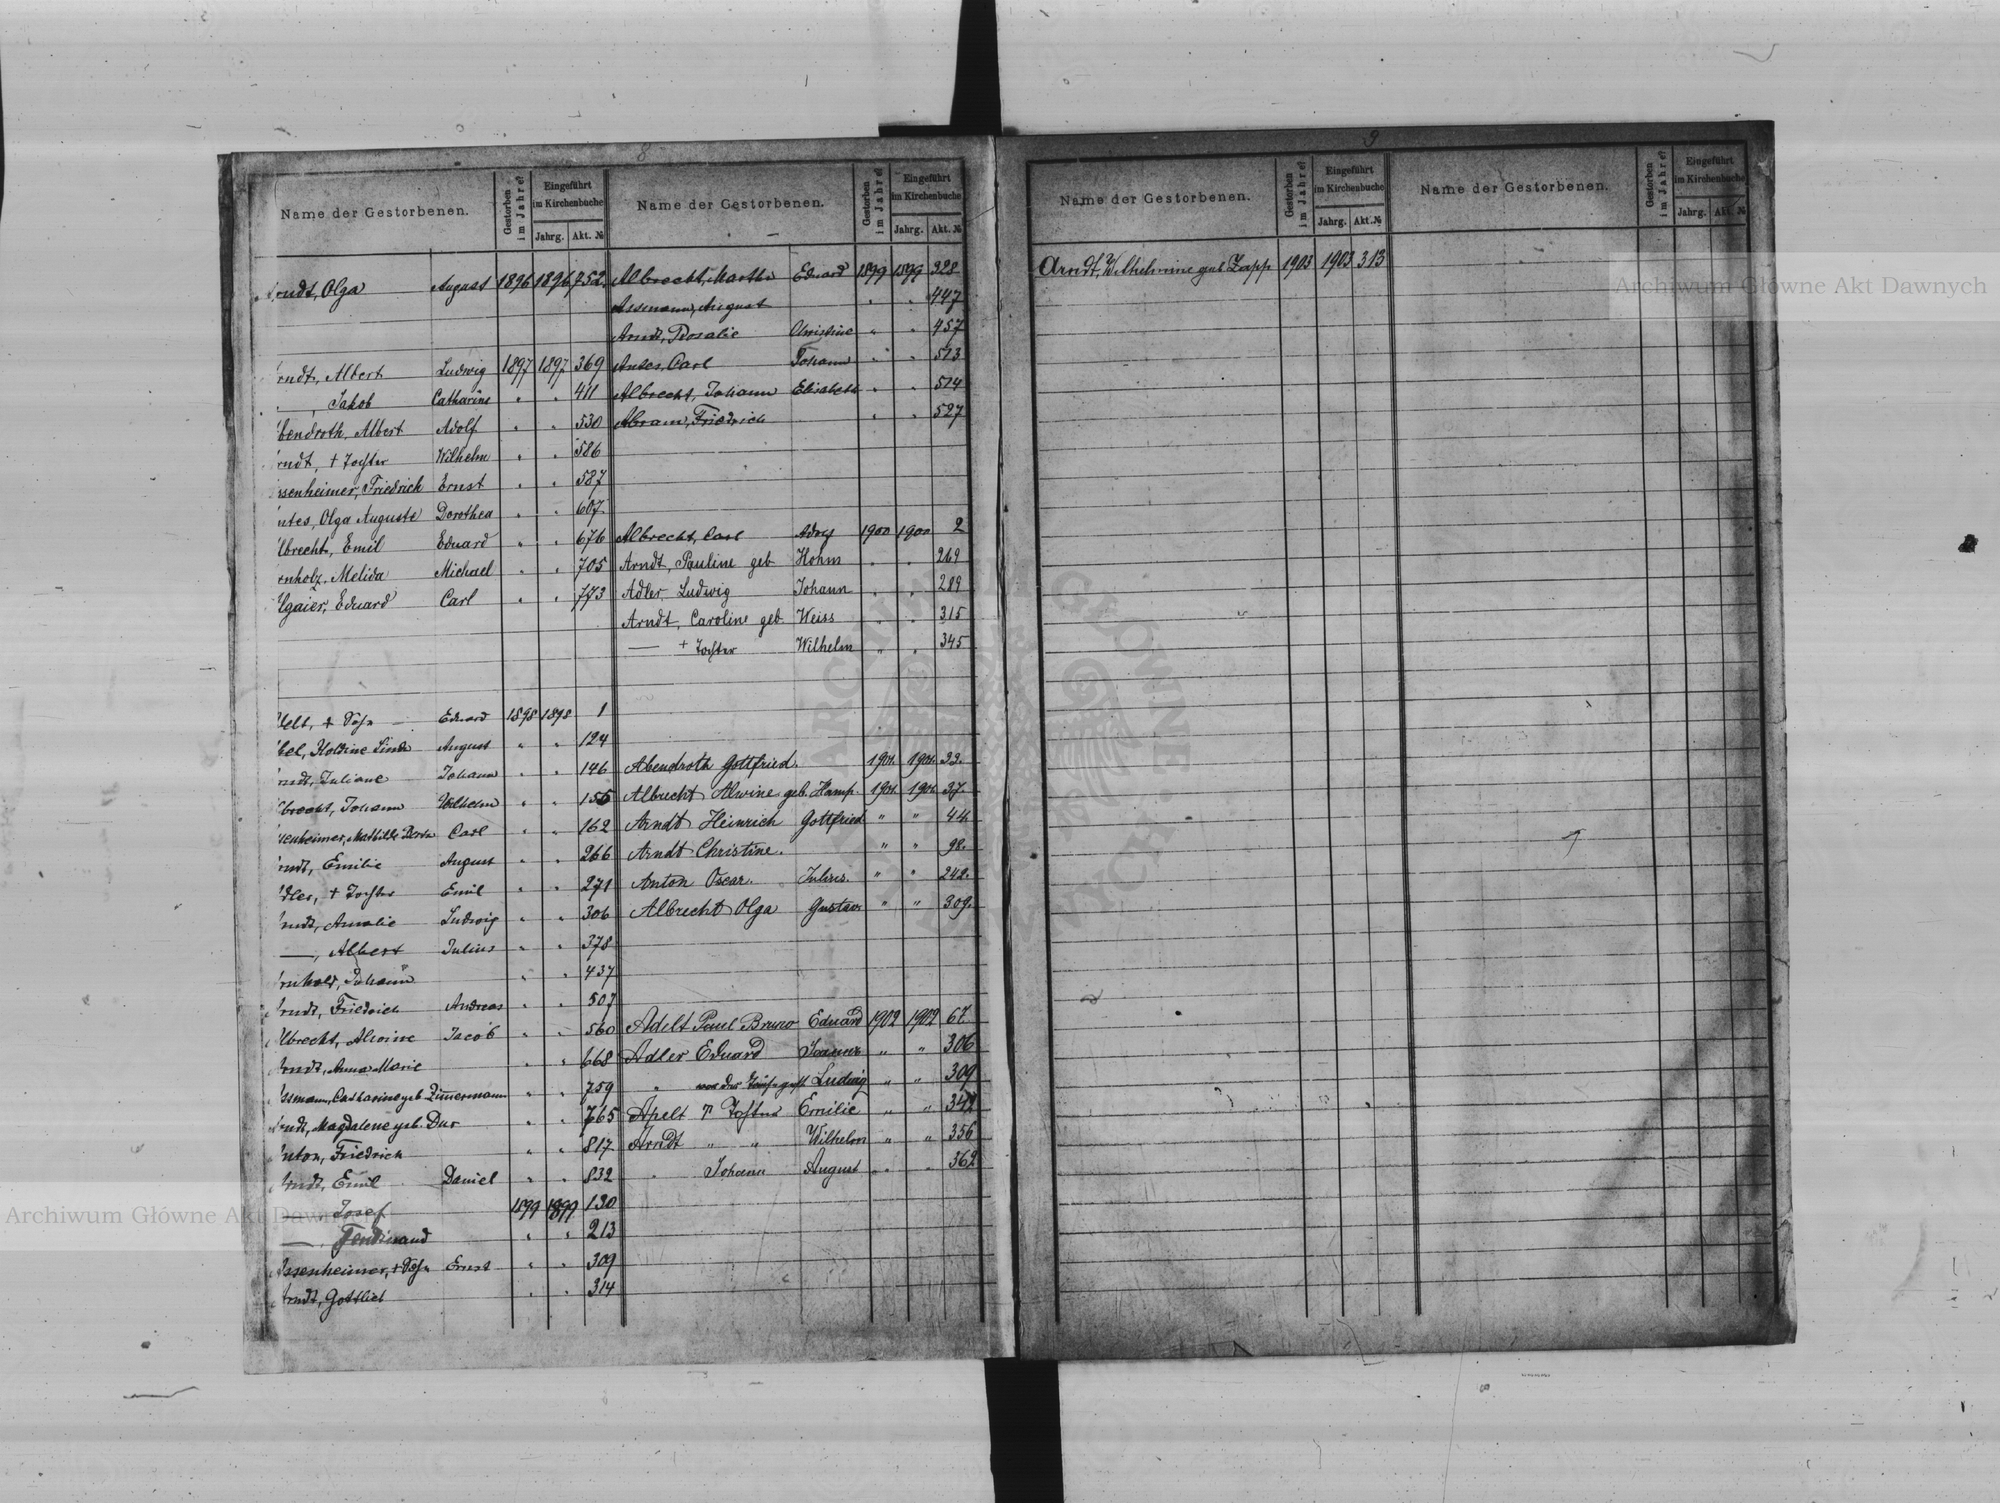 8
Name der Gestorbenen. Gestorben im Jahre Eingeführt im Kirchenbuche Jahrg. Akt. №
rndt, Olga August 1896 1896 752.
rndt, Albert Ludwig 1897 1897 369
" , Jakob Catharine " " 411
bendroth, Albert Adolf " " 530
rndt, + Tochter Wilhelm " " 586
ssenheimer, Friedrich Ernst " " 587
ntes, Olga Auguste Dorothea " " 607
lbrecht, Emil Eduard " " 676
rnholz, Melida Michael " " 705
lgaier, Eduard Carl " " 773
delt, + Sohn — Eduard 1898 1898 1
bel, Linda August " " 124
rndt, Juliane Johann " " 146
lbrecht, Johann Wilhelm " " 155
ssenheimer, Mathilde Carl " " 162
rndt, Emilie August " " 266
dler, + Tochter Emil " " 271
rndt, Amalie Ludwig " " 306
—, Albert Julius " " 378
rnhold, Johann " " 437
rndt, Friedrich Andreas " " 507
lbrecht, Alwine Jacob " " 560
rndt, Anna Marie " " 668
ssmann, Catharine geb. Zimmermann " " 759
rndt, Magdalene geb. Dur " " 765
nton, Friedrich " " 817
rndt, Emil Daniel " " 832
—, Josef 1899 1899 130
—, Ferdinand " " 213
ssenheimer, + Sohn Ernst " " 309
rndt, Gottlieb " " 314
Name der Gestorbenen. Gestorben im Jahre Eingeführt im Kirchenbuche Jahrg. Akt. №
Albrecht, Martha Eduard 1899 1899 328
Assmann, August " " 447
Arndt, Rosalie Christine " " 457
Antes, Carl Johann " " 513
Albrecht, Johann Elisabeth " " 514
Abram, Friedrich " " 527
Albrecht, Carl Adolf 1900 1900 2
Arndt, Pauline geb Hohm " " 269
Adler, Ludwig Johann " " 289
Arndt, Caroline geb Weiss " " 315
— + Tochter Wilhelm " " 345
Abendroth Gottfried. 1901. 1901. 33.
Albrecht Alwine geb. Hamp. 1901 1901 37.
Arndt Heinrich Gottfried " " 44
Arndt Christine. " " 98.
Anton Oscar. Julius. " " 242.
Albrecht Olga Gustav " " 309.
Adelt Paul Bruno Eduard 1902 1902 67
Adler Eduard " " 306
" vor der Taufe gest Ludwig " " 309
Apelt + Tochter Emilie " " 342
Arndt " " Wilhelm " " 356
" Johann August " " 362
9
Name der Gestorbenen. Gestorben im Jahre Eingeführt im Kirchenbuche Jahrg. Akt. №
Arndt, Wilhelmine geb Zapp 1903 1903 313
Name der Gestorbenen. Gestorben im Jahre Eingeführt im Kirchenbuche Jahrg. Akt. №
Archiwum Główne Akt Dawnych
Archiwum Główne Akt Dawnych